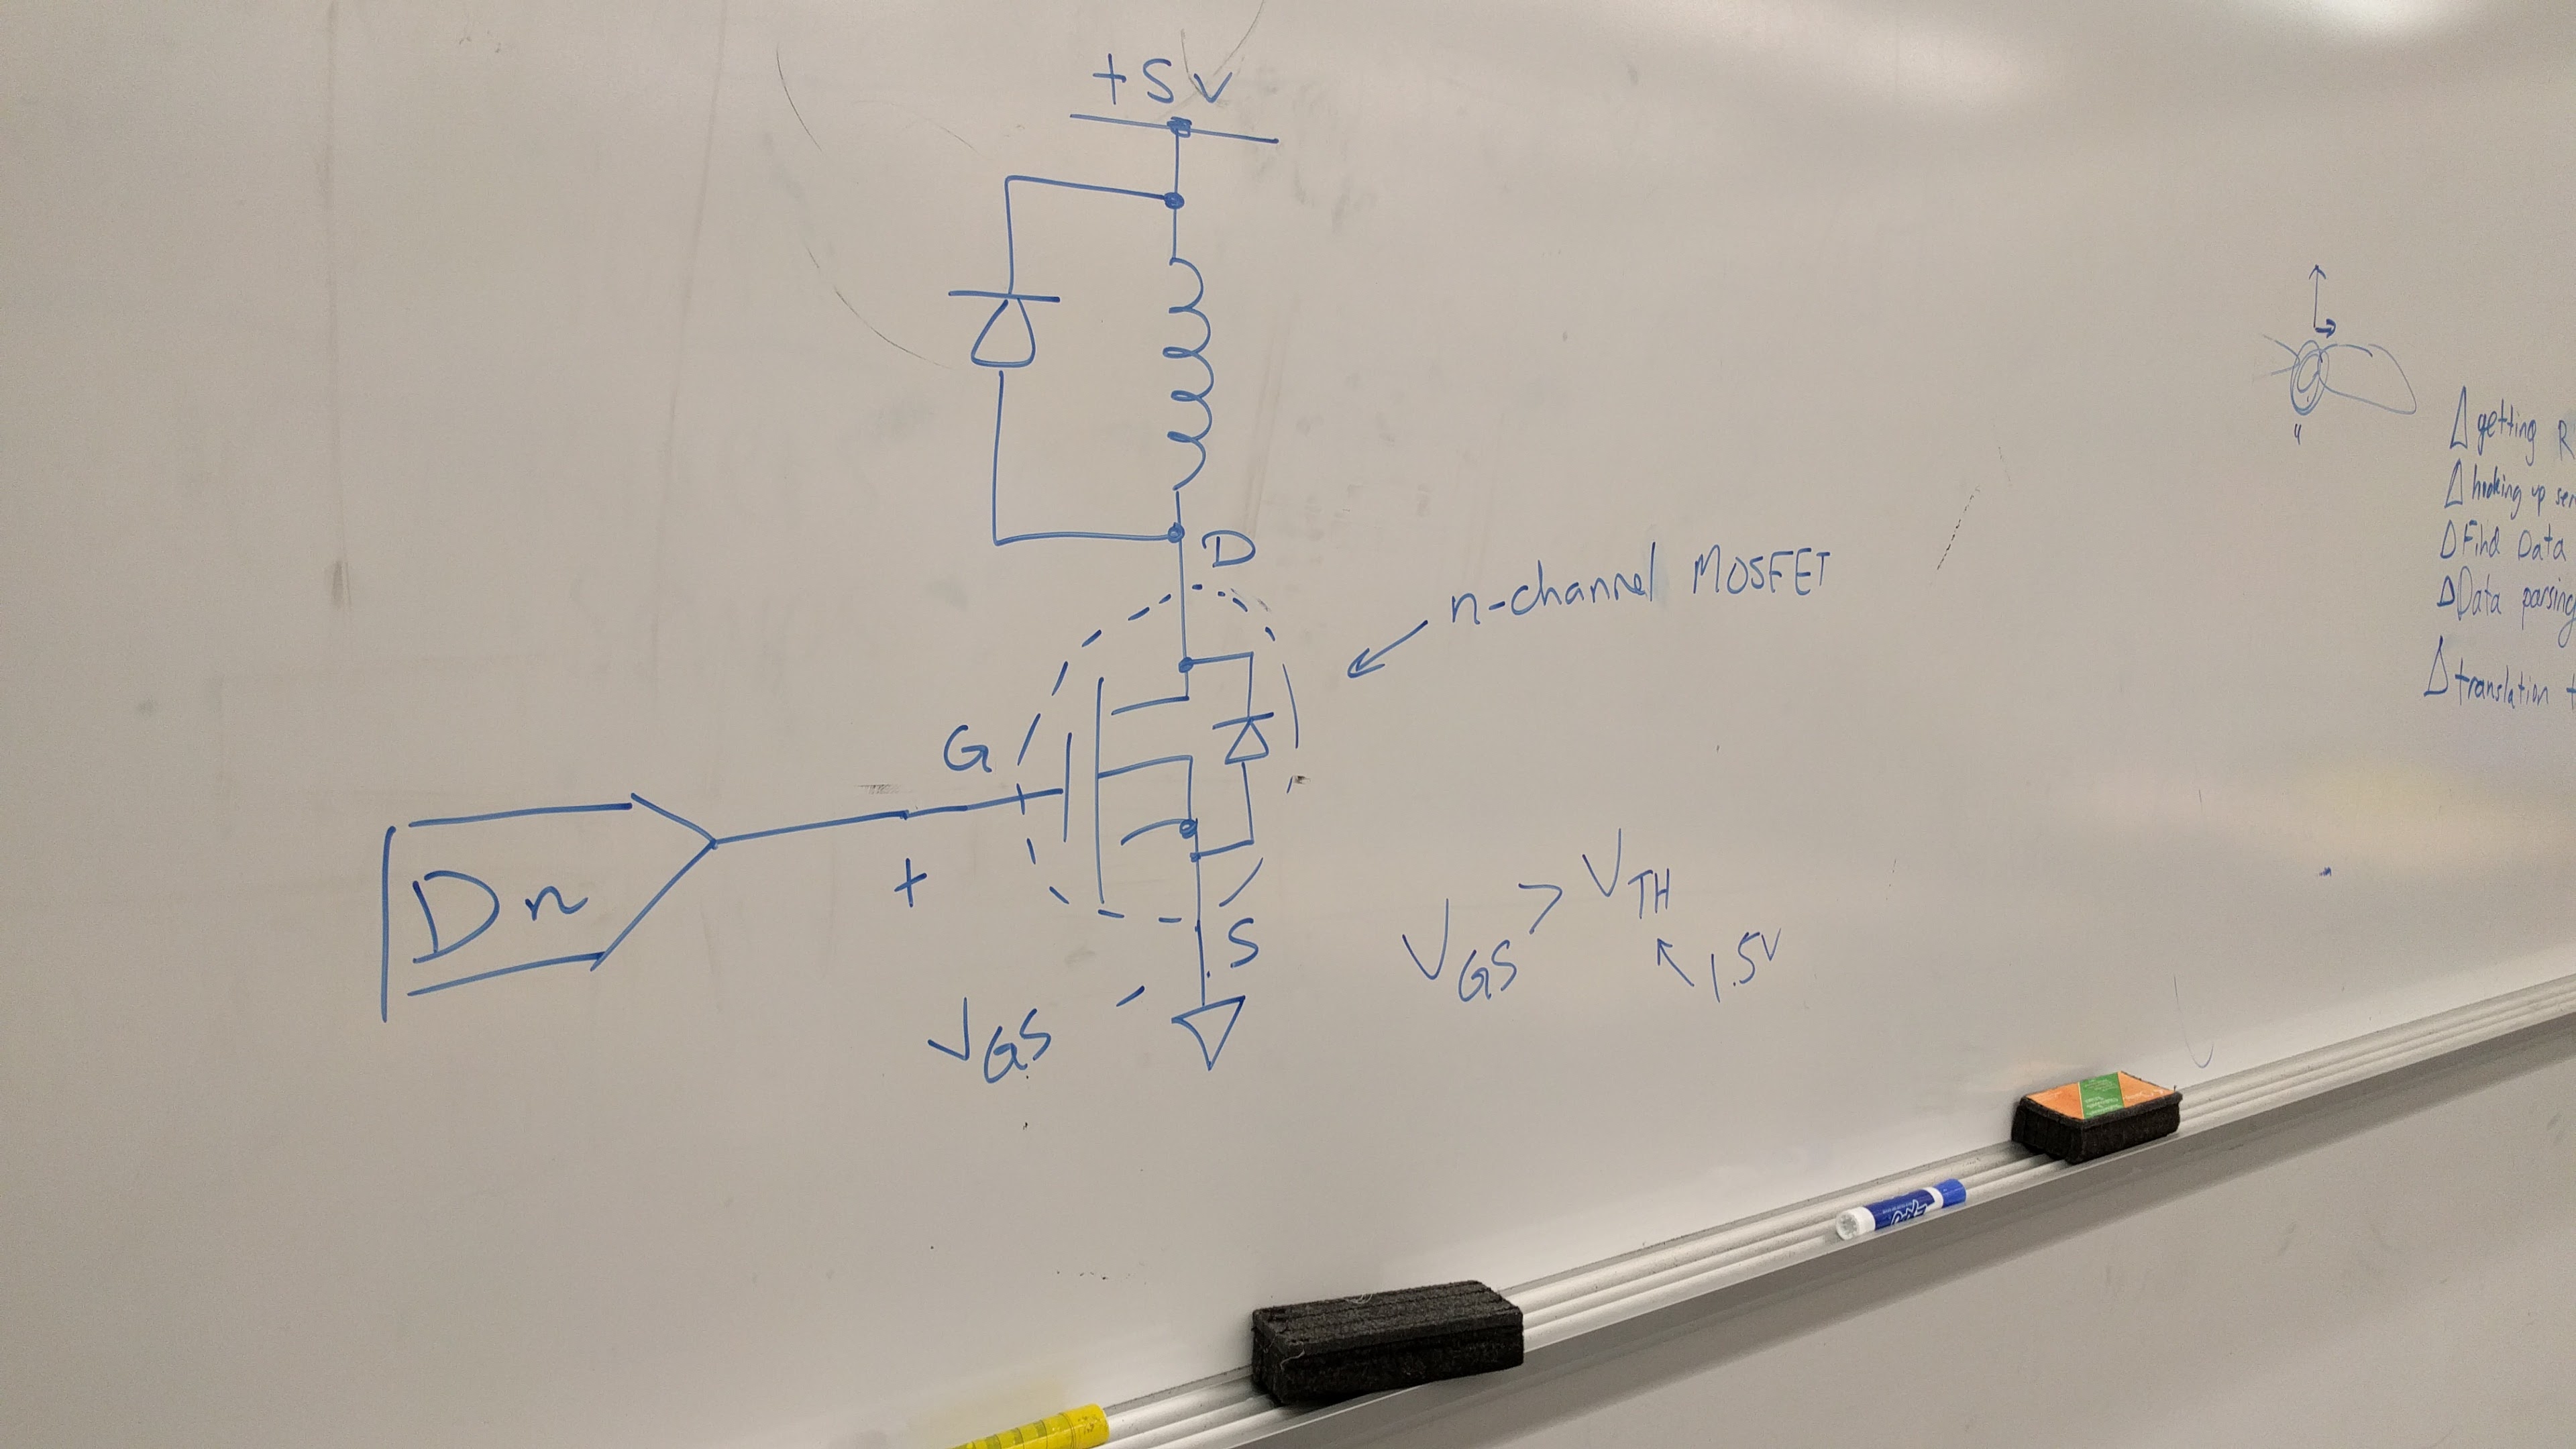 +5V
D
n-channel MOSFET
G
Dn
+
S
-
VGS
VGS > VTH
1.5V
Δ getting R
Δ hooking up sen
Δ Find Data
Δ Data parsing
Δ translation t
EXPO